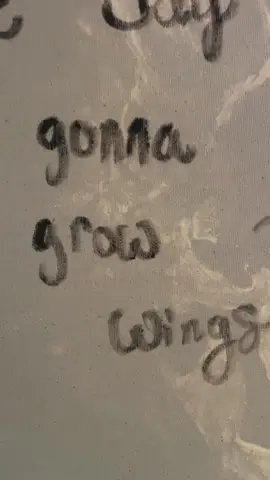 gonna
grow
wings